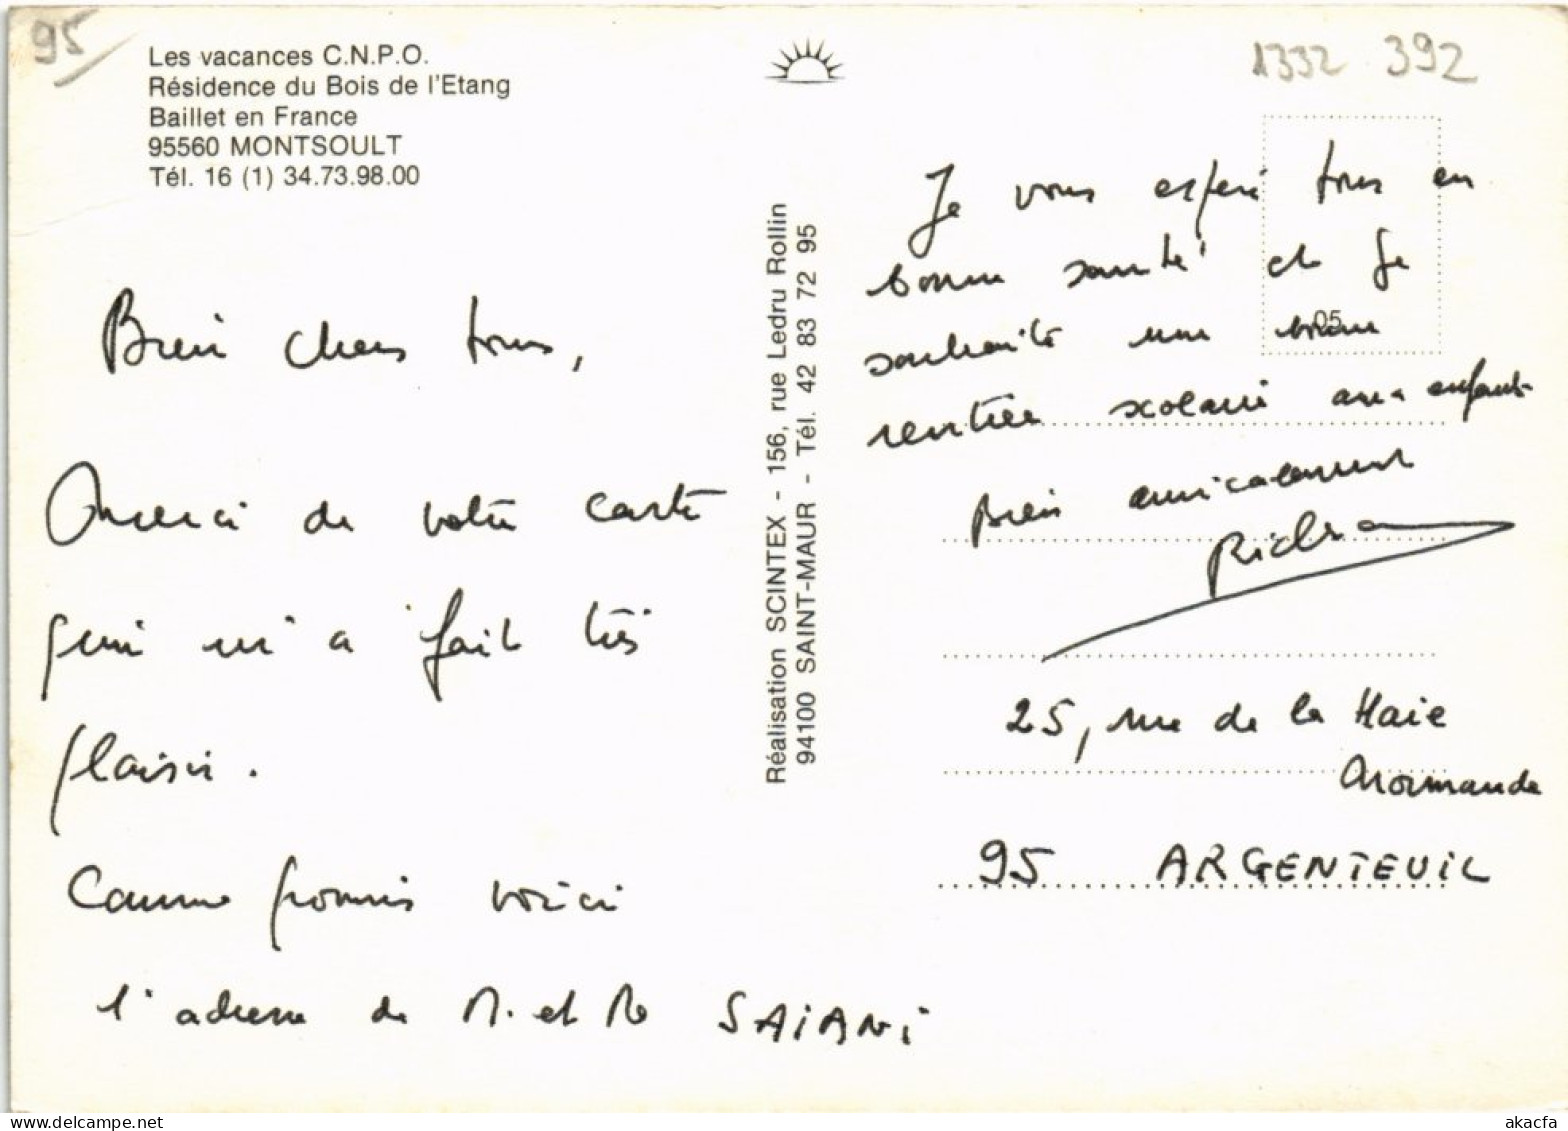 95
Les vacances C.N.P.O.
Résidence du Bois de l'Etang
Baillet en France
95560 MONTSOULT
Tél. 16 (1) 34.73.98.00
1332 392
Bien chers tous,
Merci de votre carte
qui m'a fait très
plaisir.
Comme promis voici
l'adresse de M. et Me SAIANi
Réalisation SCINTEX - 156, rue Ledru Rollin
94100 SAINT-MAUR - Tél. 42 83 72 95
Je vous espère tous en
bonne santé et je
05
souhaite une bonne
rentrée scolaire aux enfants
Bien amicalement
25, rue de la Haie
Normande
95 ARGENTEUIL
akacfa.delcampe.net
akacfa